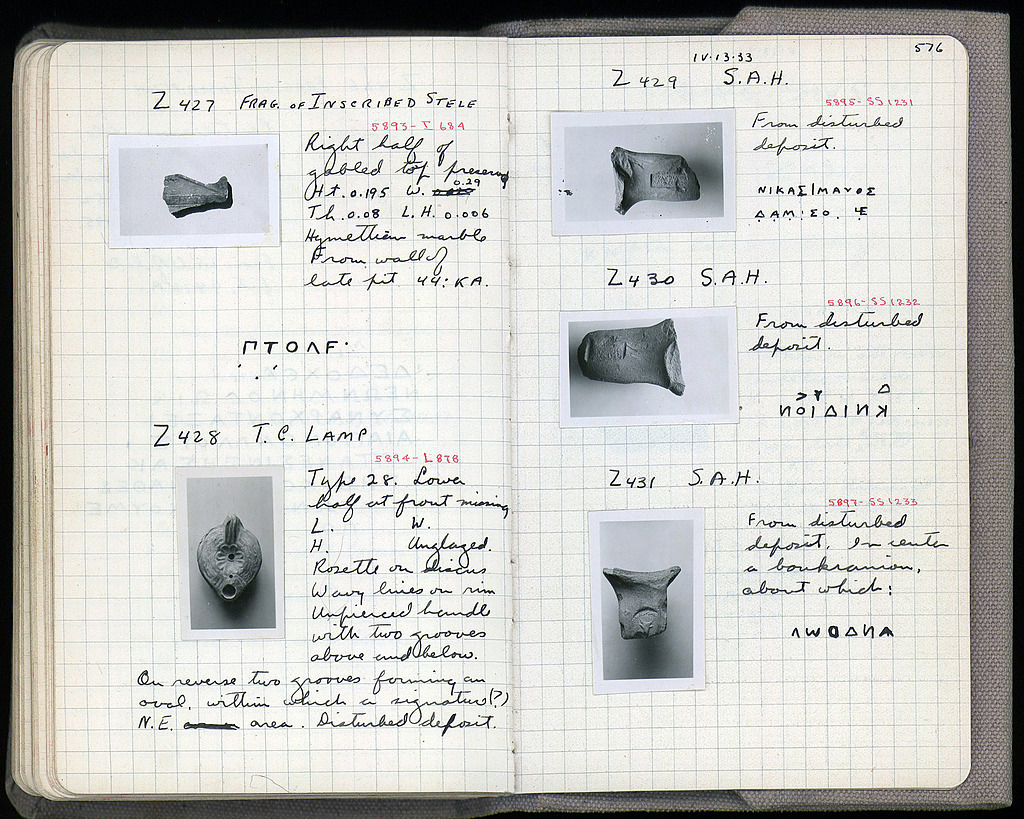 Z 427 FRAG. OF INSCRIBED STELE
5893- I 684
Right half of
gabled top preserved
Ht. 0.195 W. 0.29
Th. 0.08 L.H. 0.006
Hymettian marble
From wall of
late pit 44:ΚΑ.
ΠΤΟΛΕ·
Z 428 T.C. LAMP
5894- L 878
Type 28. Lower
half at front missing
L. W.
H. Unglazed.
Rosette on discus
Wavy lines on rim
Unpierced handle
with two grooves
above and below.
On reverse two grooves forming an
oval, within which a signature (?)
N.E. area. Disturbed deposit.
576
IV-13-33
Z 429 S.A.H.
5895- SS 1231
From disturbed
deposit.
ΝΙΚΑΣΙΜΑΥΟΣ
ΔΑΜΙΣΟ.
Z 430 S.A.H.
5896- SS 1232
From disturbed
deposit.
Δ
ΚΝΙΔΙΟΝ
Z 431 S.A.H.
5897- SS 1233
From disturbed
deposit. In center
a boukranion,
about which: